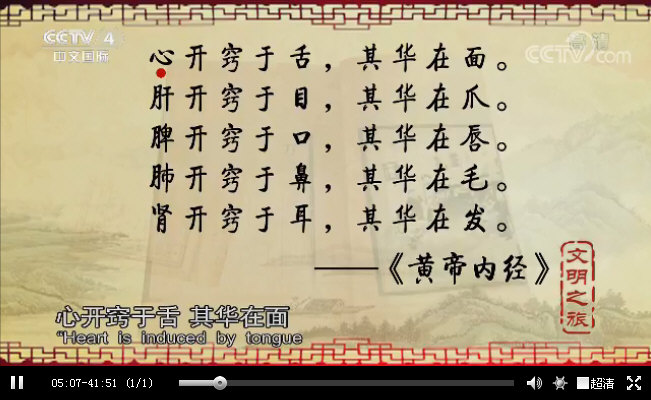 CCTV 4
中文国际
高清
CCTV.com
心开窍于舌，其华在面。
肝开窍于目，其华在爪。
脾开窍于口，其华在唇。
肺开窍于鼻，其华在毛。
肾开窍于耳，其华在发。
——《黄帝内经》
文明之旅
心开窍于舌 其华在面
"Heart is induced by tongue
05:07-41:51 (1/1)
超清